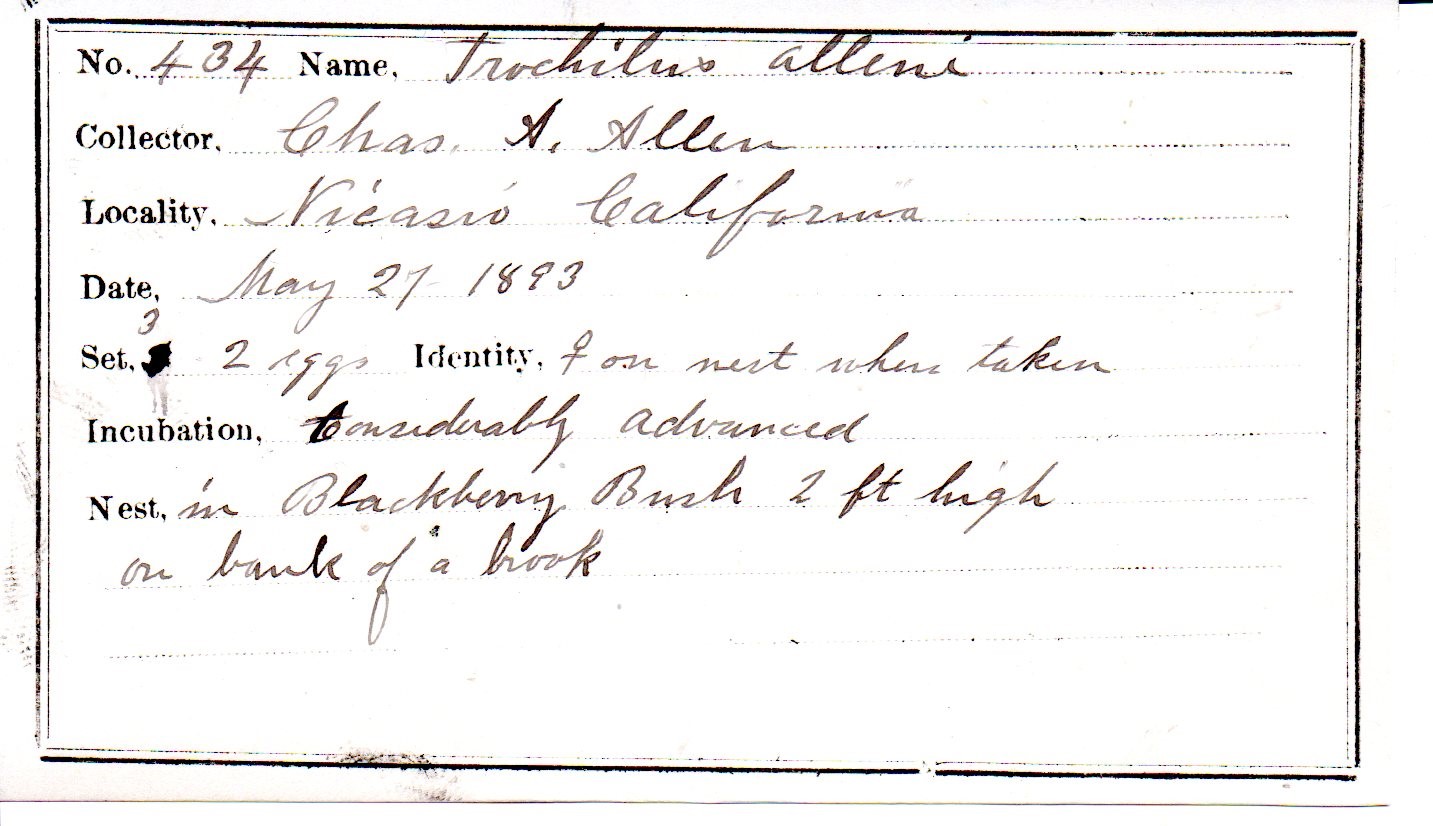 No. 434 Name, Trochilus alleni
Collector, Chas. A. Allen
Locality, Nicasio California
Date, May 27 1893
3
Set, 2 eggs Identity, ♀ on nest when taken
Incubation, Considerably advanced
Nest, in Blackberry Bush 2 ft high
on bank of a brook